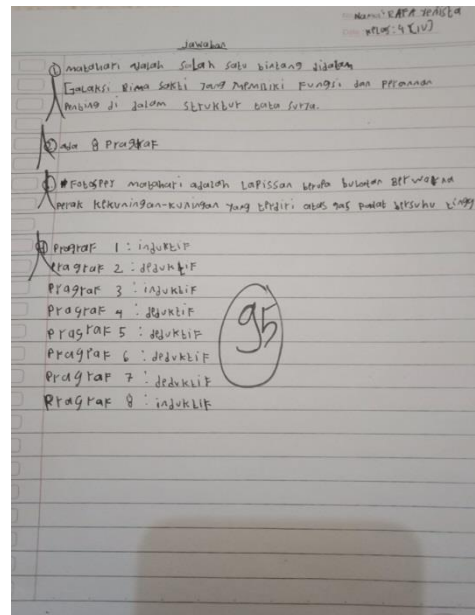 Nama: RAPA Yenista
Kelas: 4 (IV)
Jawaban
1 matahari adalah salah satu bintang didalam
Galaksi Bima Sakti Yang MEMiliki Fungsi dan Perannan
Penting di dalam Struktur tata surya.
2 ada 8 PragraF
3 FotosFer matahari adalah LaPissan berupa bulatan BerWarna
Perak KeKuningan-Kuningan Yang terdiri atas gas Padat bersuhu tinggi
4 PragraF 1 : induktiF
PragraF 2 : deduktiF
PragraF 3 : induktiF
PragraF 4 : deduktiF
PragraF 5 : deduktiF
PragraF 6 : deduktiF
PragraF 7 : deduktiF
PragraF 8 : induktiF
95